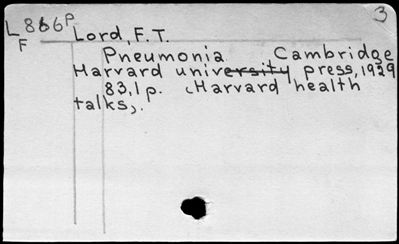 3
L886P
F
Lord, F.T.
Pneumonia. Cambridge
Harvard university press, 1929
83,1 p. (Harvard health
talks).